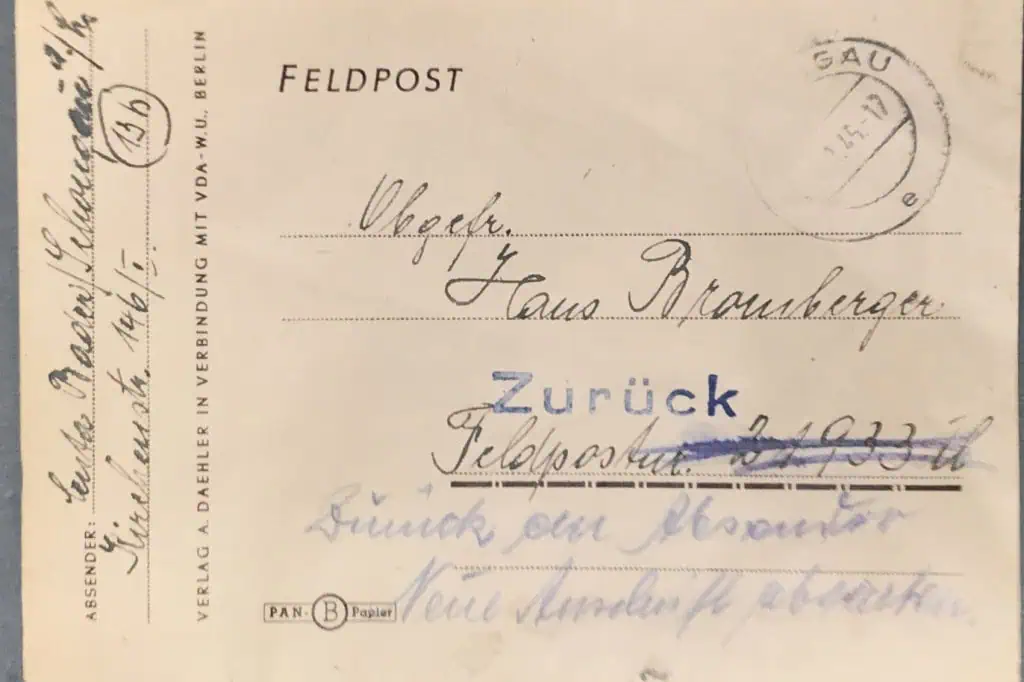 FELDPOST
GAU
.45.-17
e
Obgefr.
Hans Bromberger.
Zurück
Feldpostnr. 21933 Ü
Zurück an Absender
Neue Anschrift abwarten
PAN- B Papier
ABSENDER: Bader, Schongau a/L.
Kirchenstr. 146/I.
13b
VERLAG A. DAEHLER IN VERBINDUNG MIT VDA-W.U., BERLIN